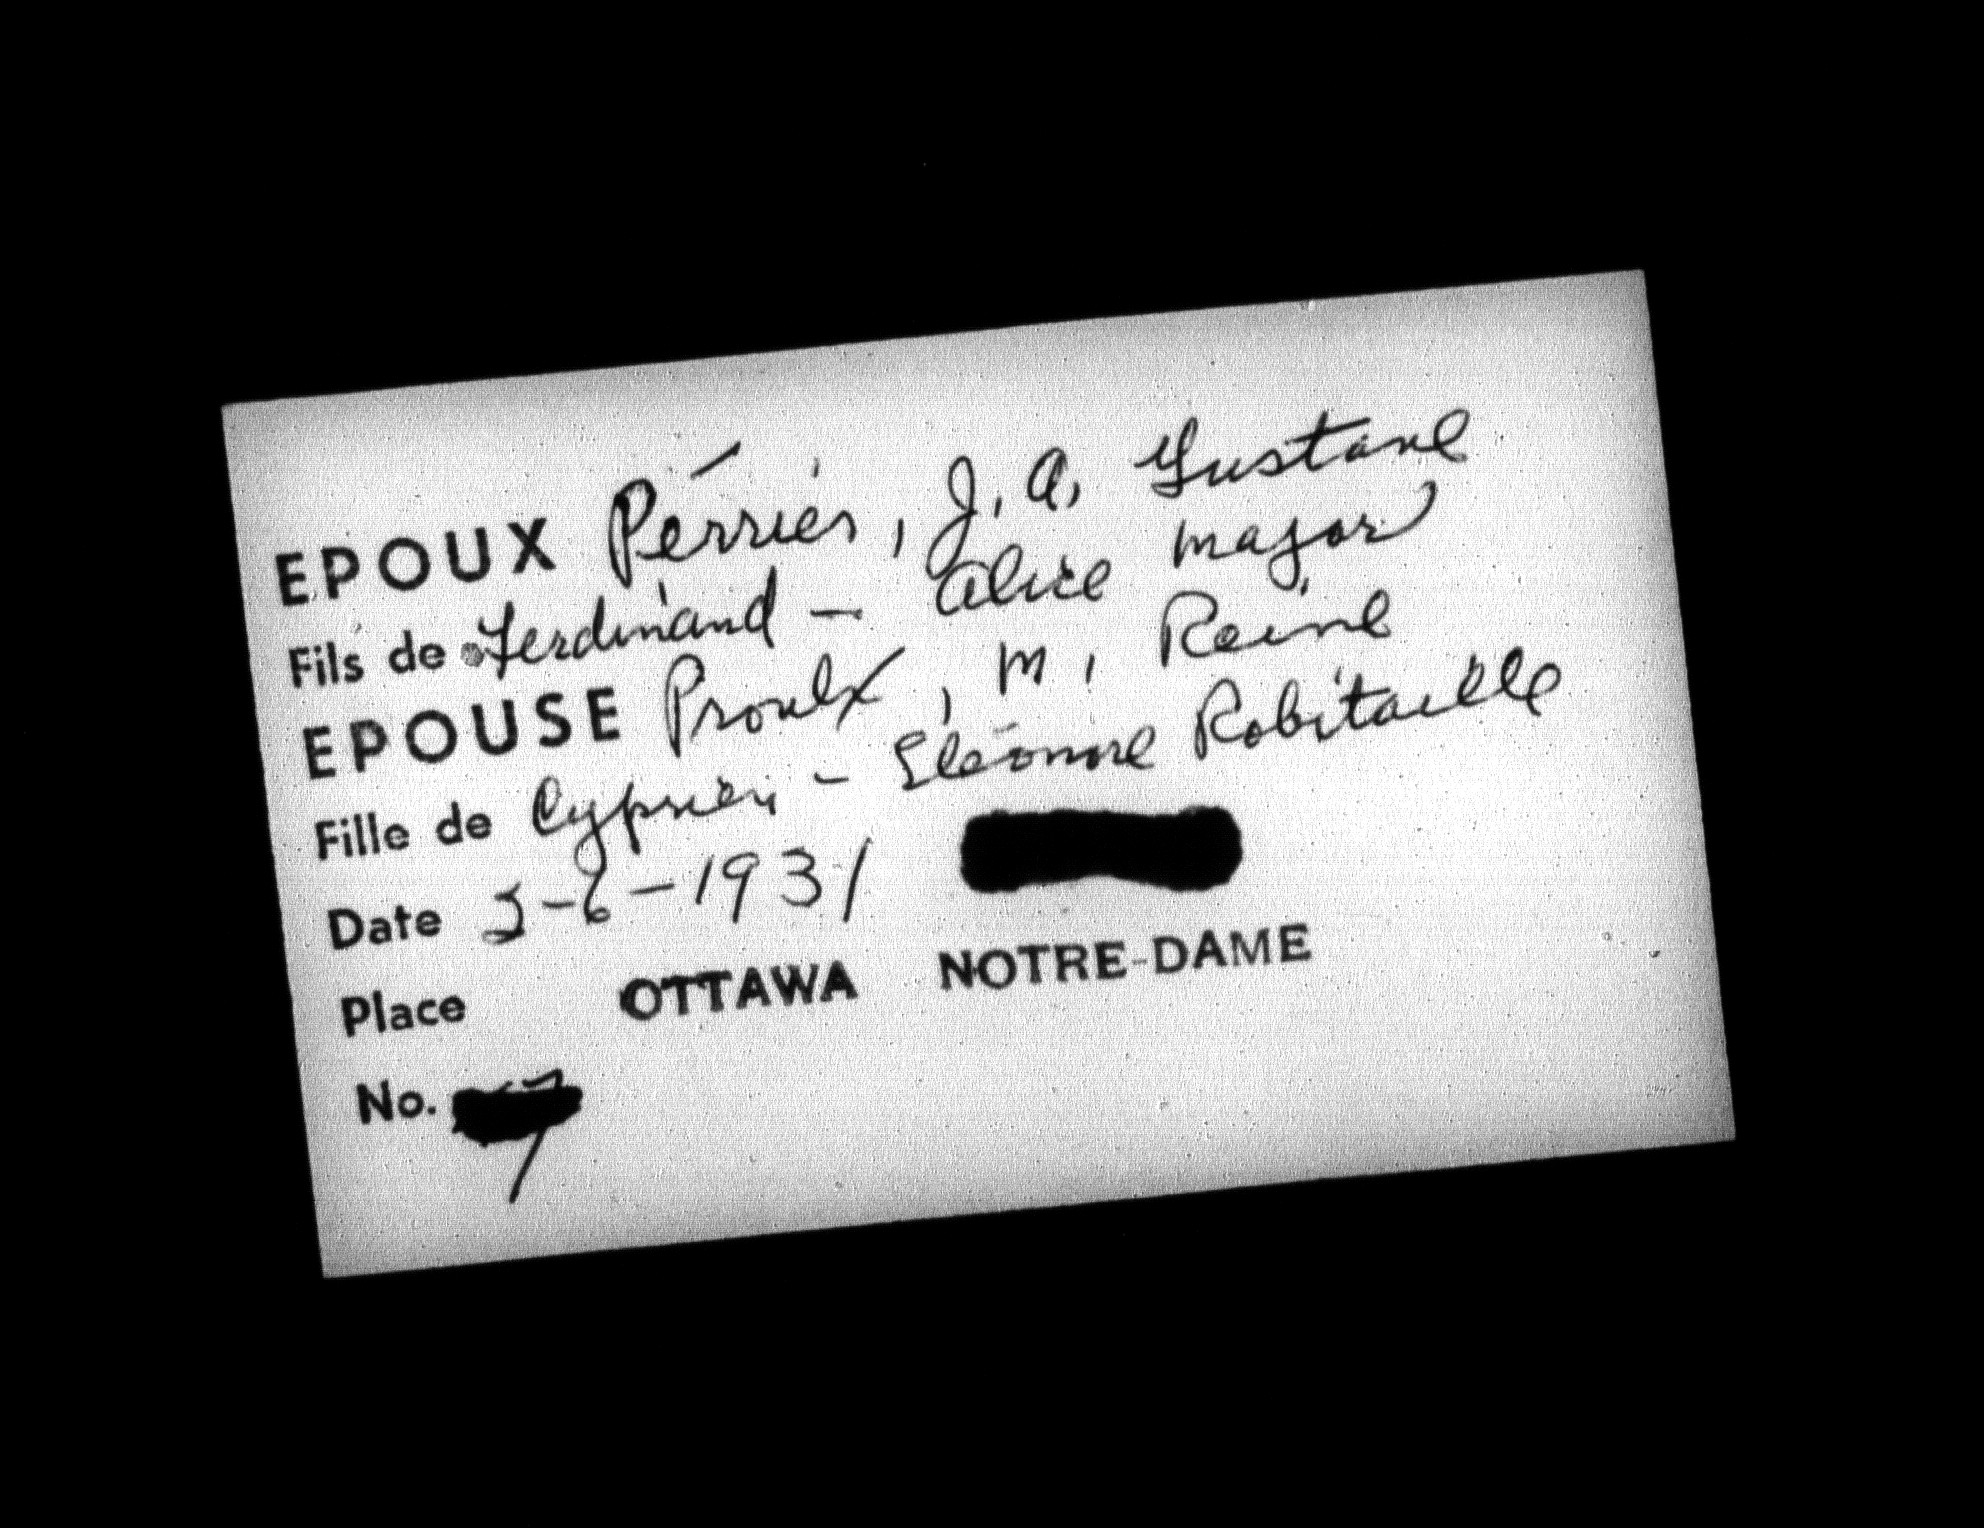 EPOUX Périer, J. A. Gustave
Fils de Ferdinand - Alice Major
EPOUSE Proulx, M. Reine
Fille de Cyprien - Eléonore Robitaille
Date -6-1931
Place OTTAWA NOTRE-DAME
No.